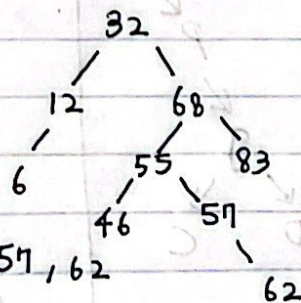 32
12 68
6 55 83
46 57
57, 62
62